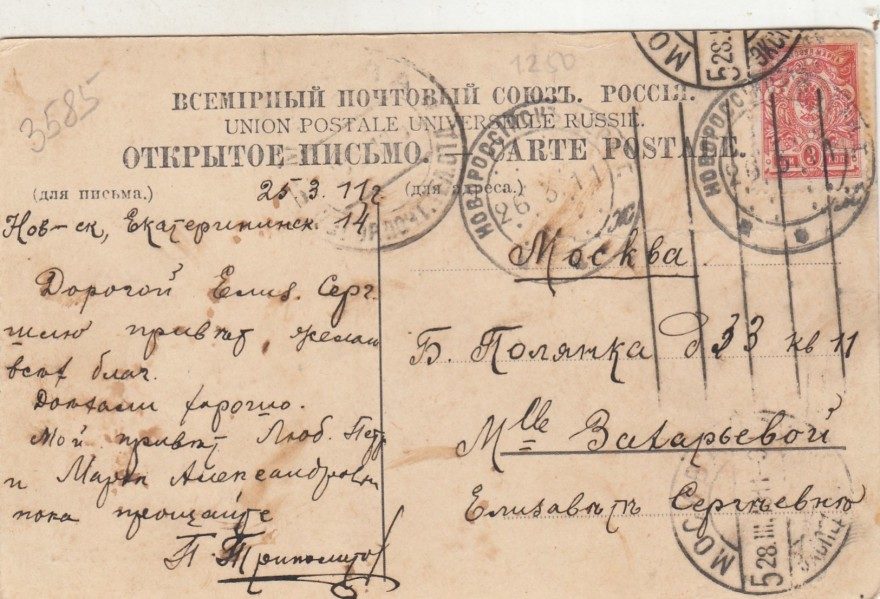 3585
1250
ВСЕМІРНЫЙ ПОЧТОВЫЙ СОЮЗЪ. РОССІЯ.
UNION POSTALE UNIVERSELLE RUSSIE.
ОТКРЫТОЕ ПИСЬМО. — CARTE POSTALE.
(для письма.)
(для адреса.)
25 3. 11 г
Нов-ск, Екатерининск. 14
Дорогой Елиз. Серг.
шлю привѣт желаю
всѣх благ.
Доѣхали хорошо.
Мой привѣт Люб. Петр
и Марьи Александровнѣ
пока прощайте
Москва
Б. Полянка д 33 кв 11
Mlle Захарьевой
Елизаветѣ Сергѣевнѣ
НОВОРОССІЙСКЪ
26 3 11
НОВОРОССІЙСКЪ
МОС
5 28.
ЭКСП
МОС
5 28.III
3 КОП